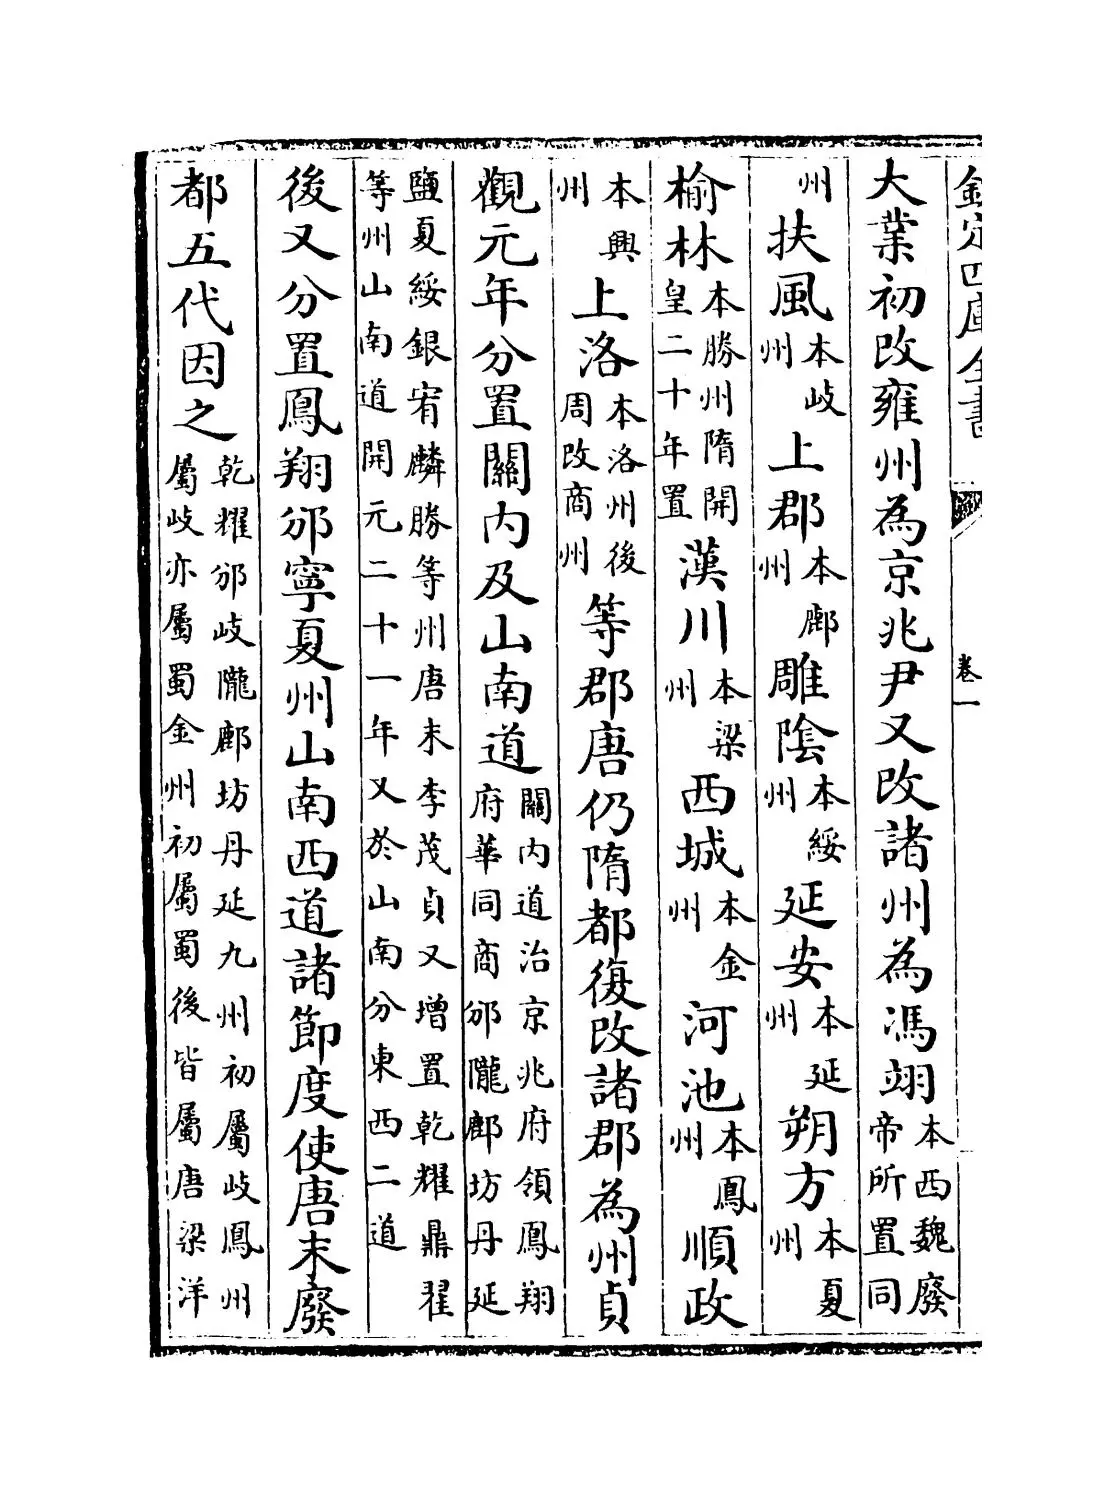 欽定四庫全書 卷一
大業初改雍州為京兆尹又改諸州為馮翊本西魏廢帝所置同
州扶風本岐州上郡本鄜州雕陰本綏州延安本延州朔方本夏州
榆林本勝州隋開皇二十年置漢川本梁州西城本金州河池本鳳州順政
本興州上洛本洛州後周改商州等郡唐仍隋都復改諸郡為州貞
觀元年分置關內及山南道關內道治京兆府領鳳翔府華同商邠隴鄜坊丹延
鹽夏綏銀宥麟勝等州唐末李茂貞又增置乾耀鼎翟等州山南道開元二十一年又於山南分東西二道
後又分置鳳翔邠寧夏州山南西道諸節度使唐末廢
都五代因之乾耀邠岐隴鄜坊丹延九州初屬岐鳳州屬岐亦屬蜀金州初屬蜀後皆屬唐梁洋